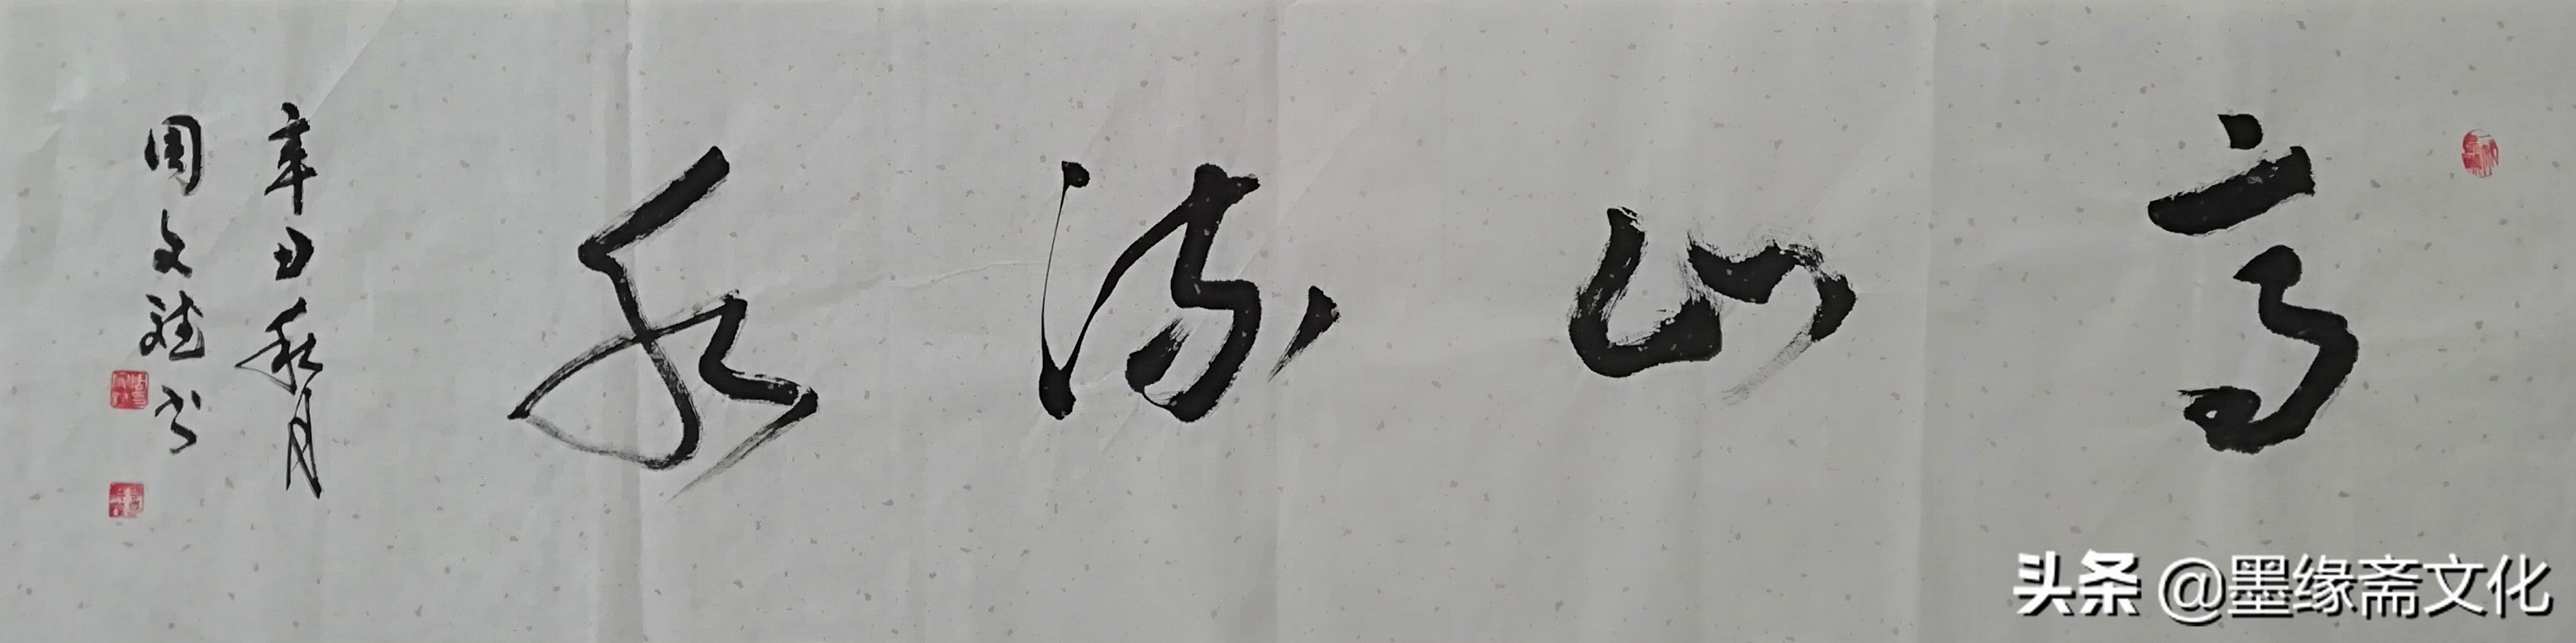 高山流水
辛丑秋月
周文斌书
头条 @墨缘斋文化